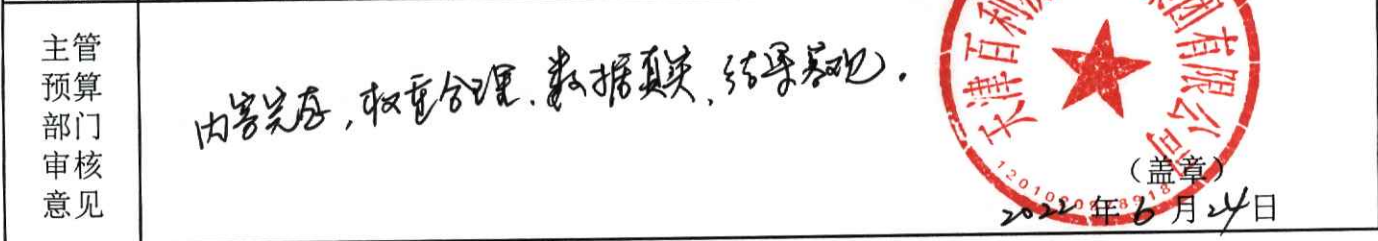 主管
预算
部门
审核
意见
内容完存,权重合理、数据真实、结果客观。
天津百利 团有限公司
(盖章)
2022年6月24日